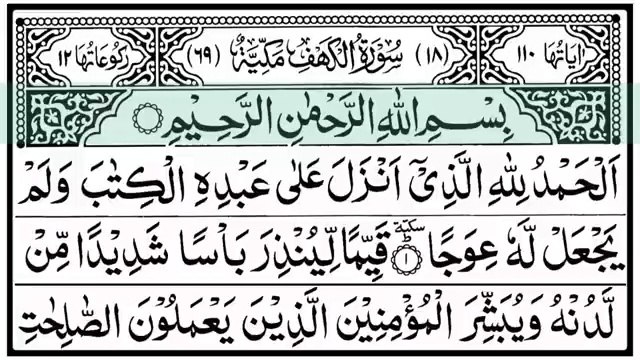 اٰیَاتُهَا ١١٠ (١٨) سُوْرَةُ الْكَهْفِ مَكِّيَّةٌ (٦٩) رُكُوْعَاتُهَا ١٢
بِسْمِ اللّٰهِ الرَّحْمٰنِ الرَّحِيْمِ
اَلْحَمْدُ لِلّٰهِ الَّذِیْۤ اَنْزَلَ عَلٰی عَبْدِهِ الْكِتٰبَ وَلَمْ
یَجْعَلْ لَّهٗ عِوَجًا ؕ سكتة ١ قَیِّمًا لِّیُنْذِرَ بَاْسًا شَدِیْدًا مِّنْ
لَّدُنْهُ وَیُبَشِّرَ الْمُؤْمِنِیْنَ الَّذِیْنَ یَعْمَلُوْنَ الصّٰلِحٰتِ